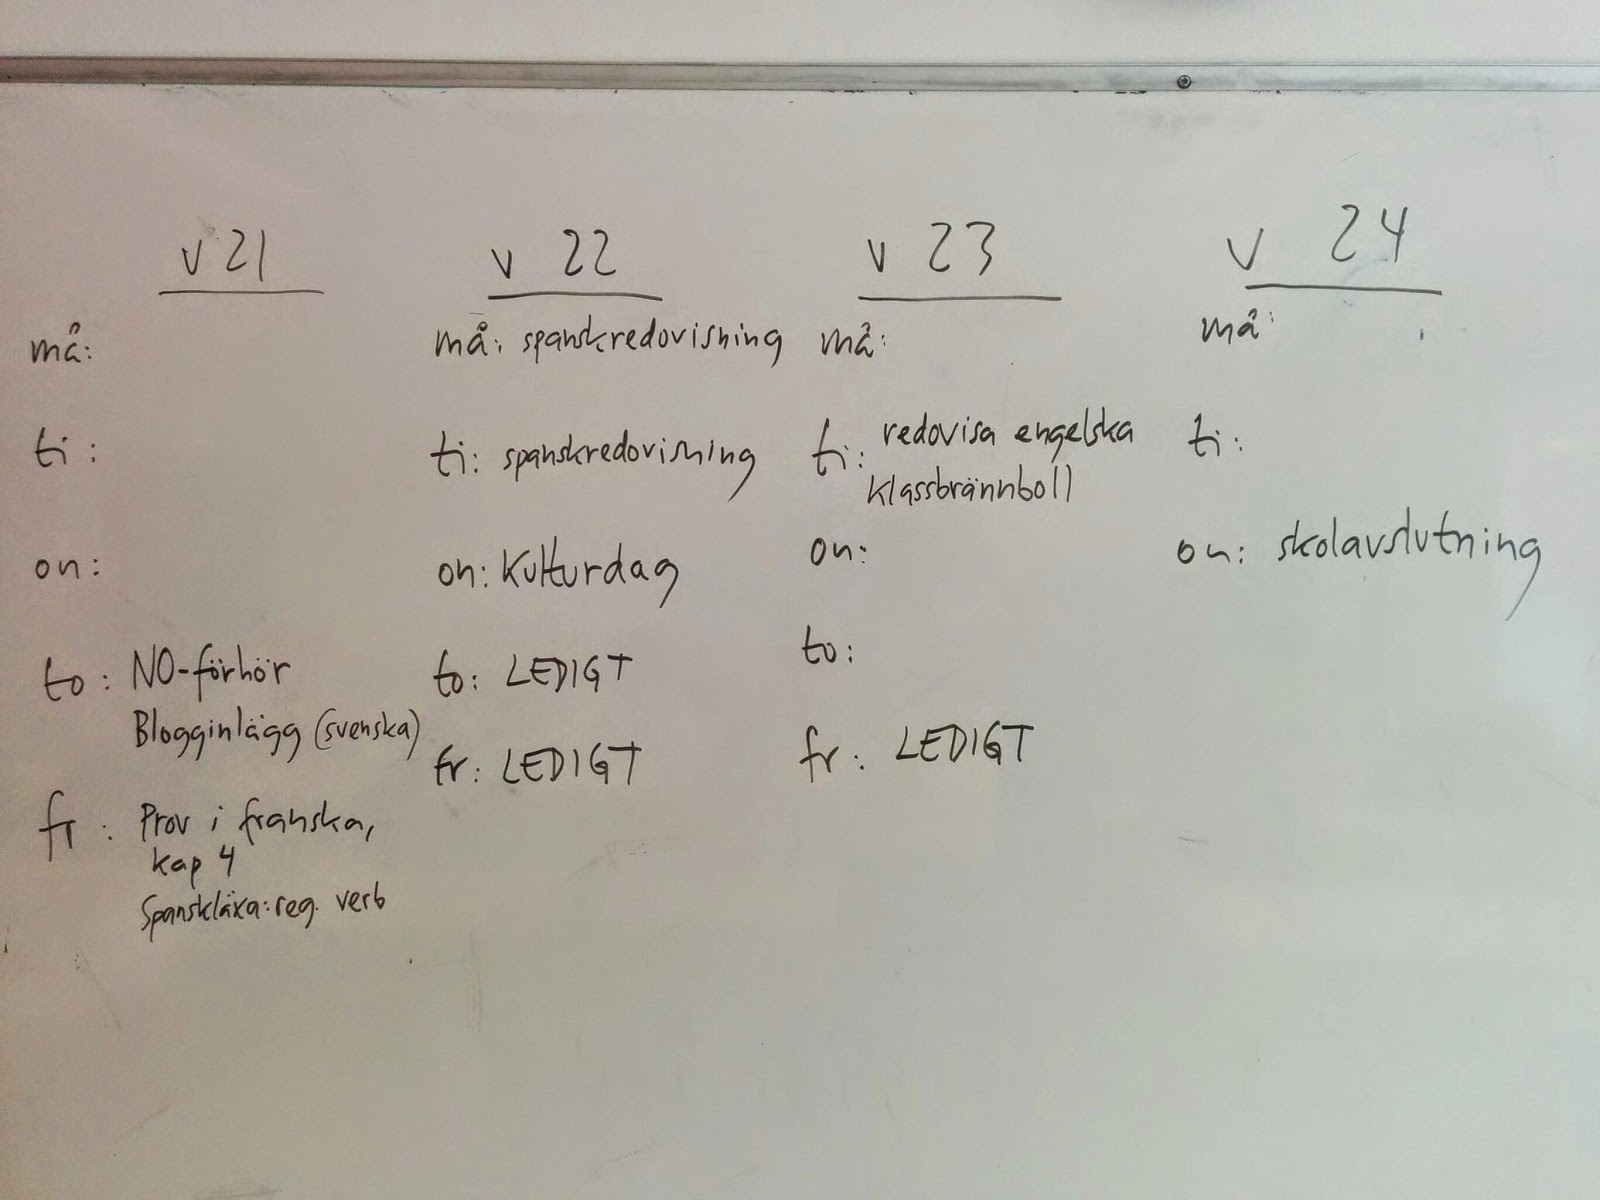 v 21
må:
ti:
on:
to: NO-förhör
Blogginlägg (svenska)
fr: Prov i franska,
kap 4
Spanskläxa: reg. verb
v 22
må: spanskredovisning
ti: spanskredovisning
on: Kulturdag
to: LEDIGT
fr: LEDIGT
v 23
må:
ti: redovisa engelska
klassbrännboll
on:
to:
fr: LEDIGT
v 24
må:
ti:
on: skolavslutning